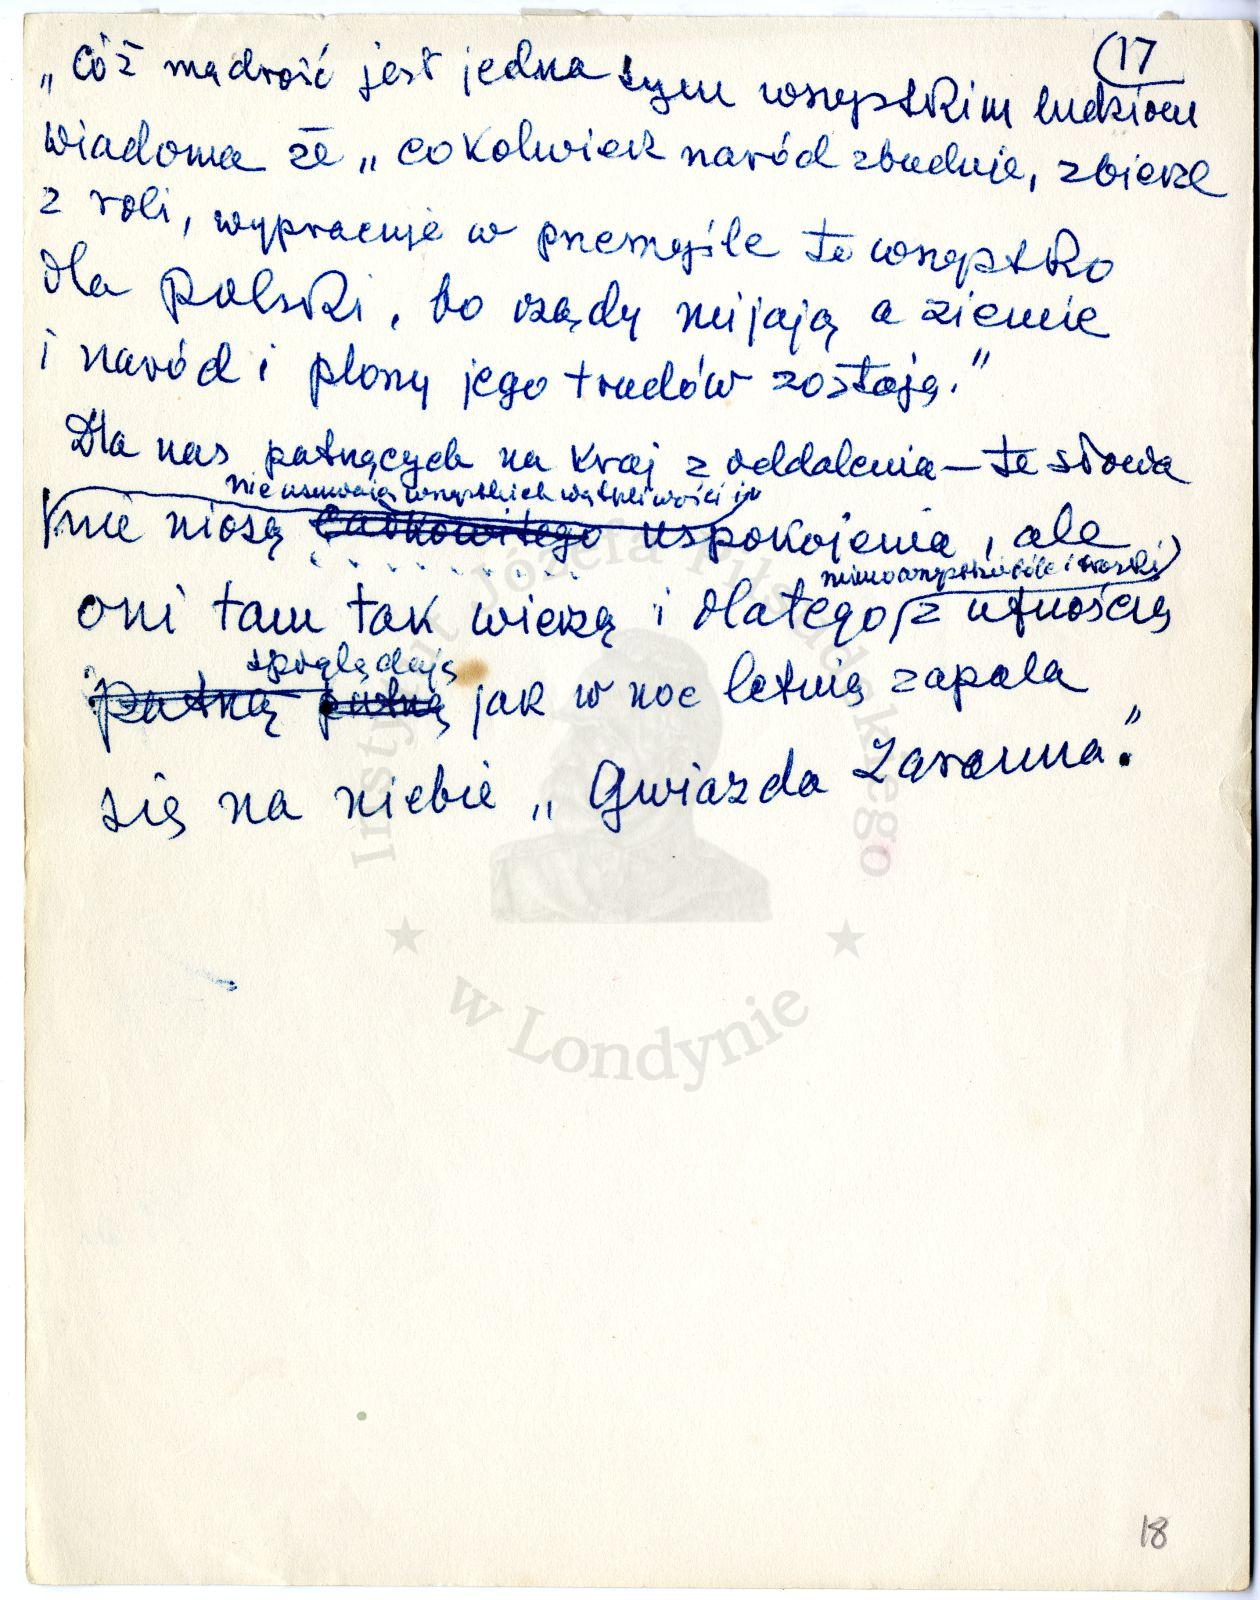 17
„Cóż mądrość jest jedna tym wszystkim ludziom
wiadoma że „cokolwiek naród zbuduje, zbierze
z roli, wypracuje w przemyśle to wszystko
dla Polski, bo rządy mijają a ziemie
i naród i plony jego trudów zostają.”
Dla nas patrzących na kraj z oddalenia – te słowa
nie usuwają wszystkich wątpliwości i
nie niosą całkowitego uspokojenia, ale
mimo wszystko bóle i troski
oni tam tak wierzą i dlatego z ufnością
spoglądają
patrzą patrzą jak w noc letnią zapala
się na niebie „Gwiazda Zaranna”.
Instytut Józefa Piłsudskiego
w Londynie
18